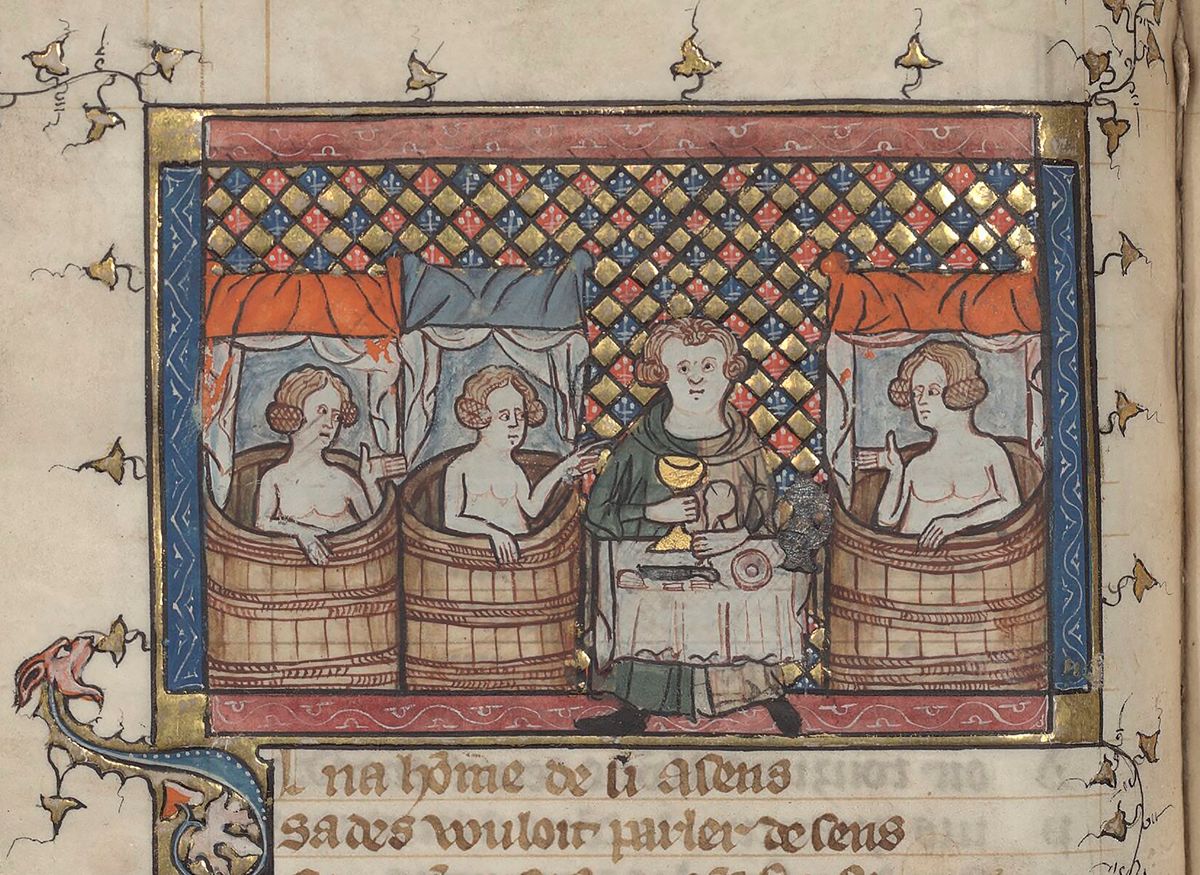 L na hōme de si asens
Sades vouloit parler de sens